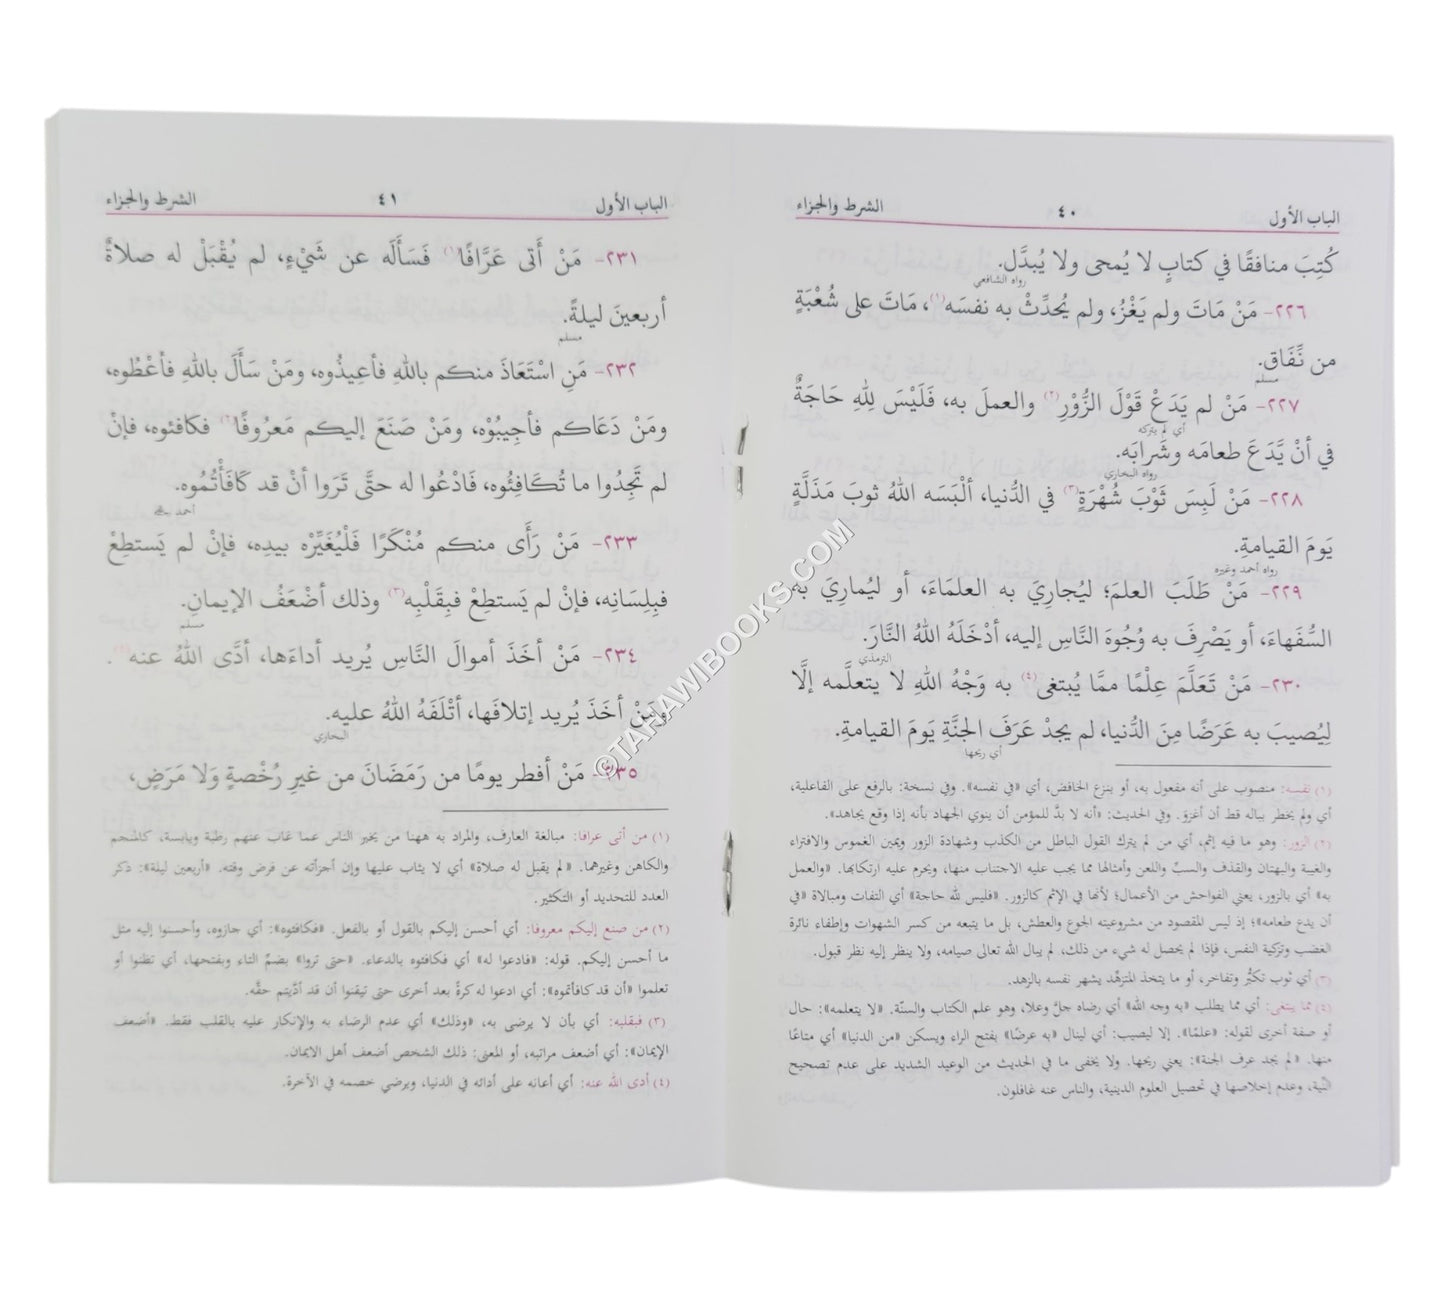 الباب الأول ٤٠ الشرط والجزاء
كُتِبَ منافقًا في كتابٍ لا يُمحى ولا يُبدَّل.
رواه الشافعي
٢٢٦- مَنْ مَاتَ ولم يَغْزُ، ولم يُحدِّثْ به نفسَه(١)، مَاتَ على شُعْبَةٍ
من نِّفَاق.
مسلم
٢٢٧- مَنْ لم يَدَعْ قَوْلَ الزُّوْرِ(٢) والعملَ به، فَلَيْسَ لِلهِ حَاجَةٌ
أي لم يتركه
في أنْ يَّدَعَ طعامَه وشَرابَه.
رواه البخاري
٢٢٨- مَنْ لَبِسَ ثَوْبَ شُهْرَةٍ(٣) في الدُّنيا، ألْبَسَه اللهُ ثوبَ مَذَلَّةٍ
يَومَ القيامةِ.
رواه أحمد وغيره
٢٢٩- مَنْ طَلَبَ العلمَ؛ ليُجارِيَ به العلمَاءَ، أو ليُمارِيَ به
السُّفَهاءَ، أو يَصْرِفَ به وُجُوهَ النَّاسِ إليه، أدْخَلَهُ اللهُ النَّارَ.
الترمذي
٢٣٠- مَنْ تَعَلَّمَ عِلْمًا ممَّا يُبتغى(٤) به وَجْهُ اللهِ لا يتعلَّمه إلَّا
لِيُصيبَ به عَرَضًا مِنَ الدُّنيا، لم يجدْ عَرَفَ الجنَّةِ يَومَ القيامةِ.
أي ريحها
(١) نفسه: منصوب على أنه مفعول به، أو بنزع الخافض، أي «في نفسه». وفي نسخة: بالرفع على الفاعلية،
أي ولم يخطر بباله قط أن أغزوَ. وفي الحديث: «أنه لا بدَّ للمؤمن أن ينوي الجهاد بأنه إذا وقع يجاهد».
(٢) الزور: وهو ما فيه إثم، أي من لم يترك القول الباطل من الكذب وشهادة الزور ويمين الغموس والافتراء
والغيبة والبهتان والقذف والسبِّ واللعن وأمثالها مما يجب عليه الاجتناب منها، ويحرم عليه ارتكابها. «والعمل
به» أي بالزور، يعني الفواحش من الأعمال؛ لأنها في الإثم كالزور. «فليس لله حاجة» أي التفات ومبالاة «في
أن يدع طعامه»؛ إذ ليس المقصود من مشروعيته الجوع والعطش، بل ما يتبعه من كسر الشهوات وإطفاء نائرة
الغضب وتزكية النفس، فإذا لم يحصل له شيء من ذلك، لم يبال الله تعالى صيامه، ولا ينظر إليه نظر قبول.
(٣) أي ثوب تكبُّر وتفاخر، أو ما يتخذ المتزهِّد يشهر نفسه بالزهد.
(٤) مما يبتغى: أي مما يطلب «به وجه الله» أي رضاه جلَّ وعلا، وهو علم الكتاب والسنّة. «لا يتعلمه»: حال
أو صفة أخرى لقوله: «علمًا». إلا ليصيب: أي لينال «به عرضًا» بفتح الراء ويسكن «من الدنيا» أي متاعًا
منها. «لم يجد عرف الجنة»: يعني ريحها. ولا يخفى ما في الحديث من الوعيد الشديد على عدم تصحيح
النِّية، وعدم إخلاصها في تحصيل العلوم الدينية، والناس عنه غافلون.
الباب الأول ٤١ الشرط والجزاء
٢٣١- مَنْ أَتى عَرَّافًا(١) فَسَأَلَه عن شَيْءٍ، لم يُقْبَلْ له صلاةُ
أربعينَ ليلةً.
مسلم
٢٣٢- مَنِ اسْتَعَاذَ منكم باللهِ فأعِيذُوه، ومَنْ سَأَلَ باللهِ فأعْطُوه،
ومَنْ دَعَاكم فأجِيبُوْه، ومَنْ صَنَعَ إليكم مَعرُوفًا(٢) فكافئوه، فإنْ
لم تَجِدُوا ما تُكَافِئُوه، فَادْعُوا له حتَّى تَرَوا أنْ قد كَافَأْتُمُوه.
أحمد
٢٣٣- مَنْ رَأَى منكم مُنْكَرًا فَلْيُغَيِّرْه بيدِه، فإنْ لم يَستطِعْ
فبِلِسَانِه، فإنْ لم يَستطِعْ فبِقَلْبِه(٣) وذلك أضْعَفُ الإيمانِ.
مسلم
٢٣٤- مَنْ أخَذَ أموالَ النَّاسِ يُريد أداءَها، أدَّى اللهُ عنه(٤).
ومَنْ أخَذَ يُريد إتلافَها، أتْلَفَهُ اللهُ عليه.
البخاري
٢٣٥- مَنْ أفطر يومًا من رَمَضَانَ من غيرِ رُخْصةٍ وَلا مَرَضٍ،
(١) من أتى عرافا: مبالغة العارف، والمراد به ههنا من يخبر الناس عما غاب عنهم رطبة ويابسة، كالمنجم
والكاهن وغيرهما. «لم يقبل له صلاة» أي لا يثاب عليها وإن أجزأته عن فرض وقته. «أربعين ليلة»: ذكر
العدد للتحديد أو التكثير.
(٢) من صنع إليكم معروفا: أي أحسن إليكم بالقول أو بالفعل. «فكافئوه»: أي جازوه، وأحسنوا إليه مثل
ما أحسن إليكم. قوله: «فادعوا له» أي فكافئوه بالدعاء. «حتى تروا» بضمِّ التاء وبفتحها، أي تظنوا أو
تعلموا «أن قد كافأتموه»: أي ادعوا له كرةً بعد أخرى حتى تيقنوا أن قد أدَّيتم حقَّه.
(٣) فبقلبه: أي بأن لا يرضى به، «وذلك» أي عدم الرضاء به والإنكار عليه بالقلب فقط. «أضعف
الإيمان»: أي أضعف مراتبه، أو المعنى: ذلك الشخص أضعف أهل الايمان.
(٤) أدى الله عنه: أي أعانه على أدائه في الدنيا، ويرضي خصمه في الآخرة.
©TAHAWIBOOKS.COM